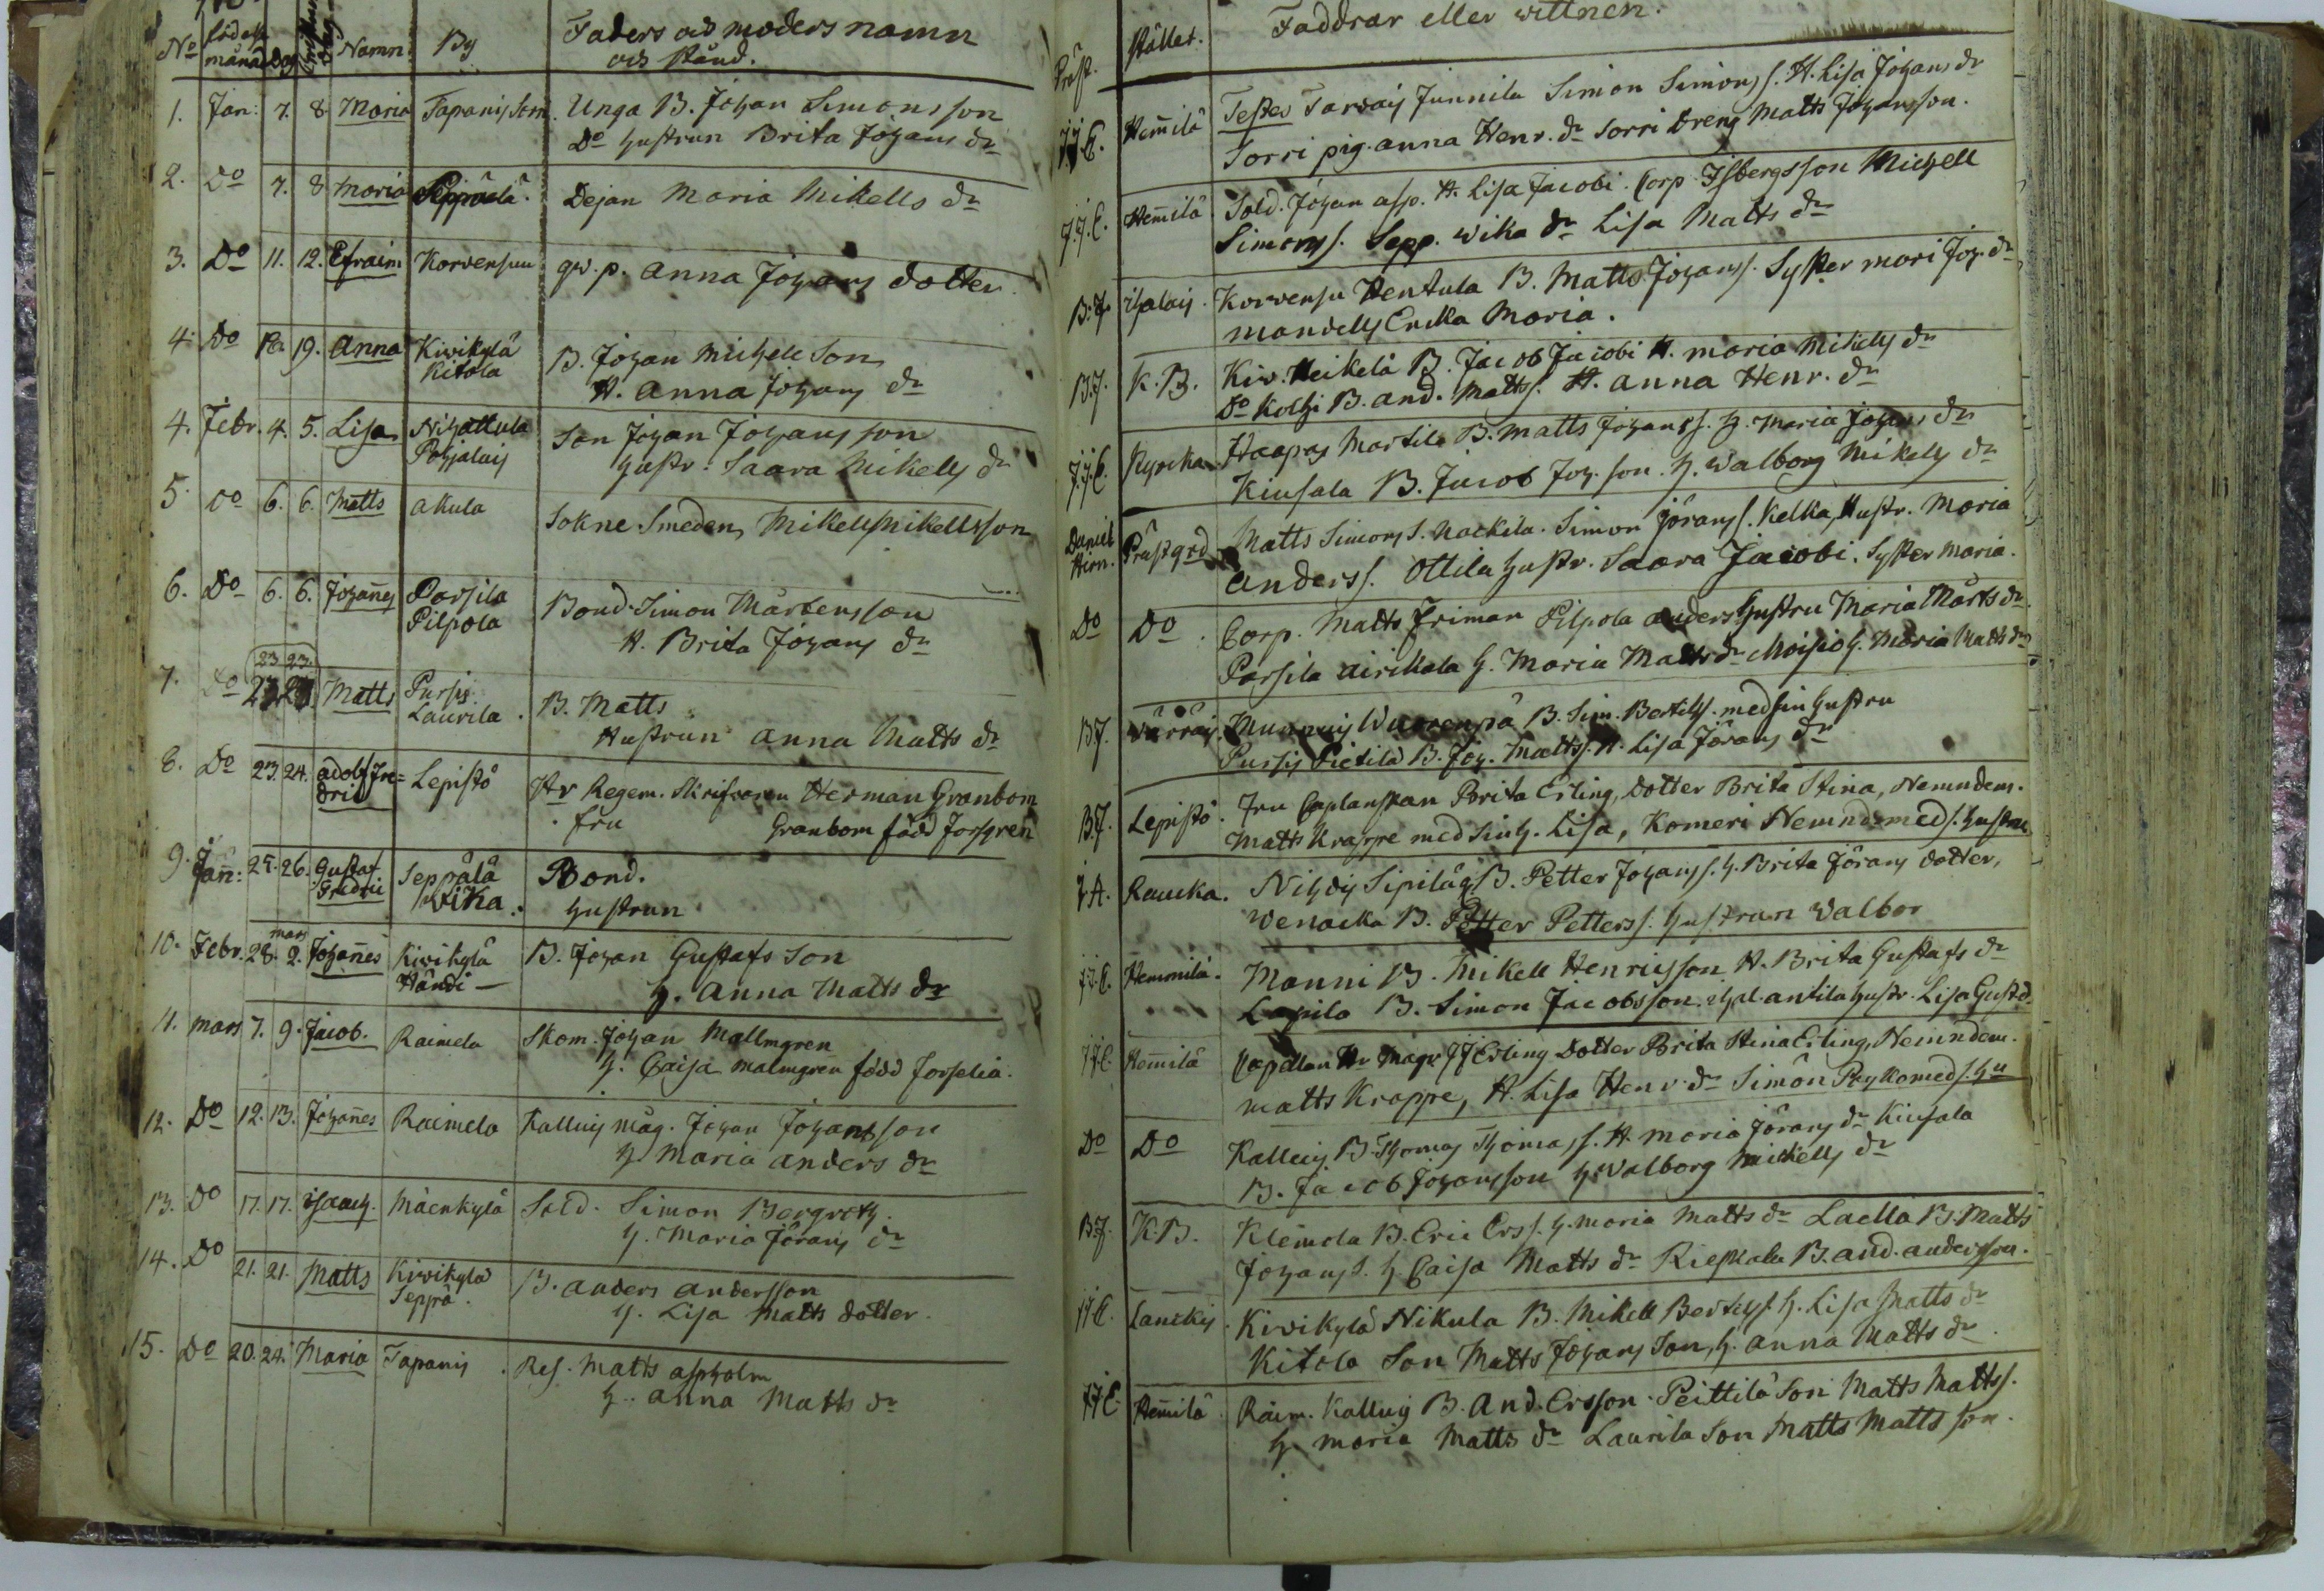 No födelse månad Dag Namn By Faders och moders namn
och stånd.
1. Jan: 7. 8. Maria Tapanis Unga B. Johan Simonsson
Do hustrun Brita Johans dr
2. Do 7. 8 Maria Seppälä. Dejan Maria Mikells dr
3. Do 11. 12. Efraim Korvensuu qv. p. Anna Johans dotter
4. Do 19. Anna Kivikylä B. Johan Michell Son
Kitola H. Anna Johans dr
4. Febr. 4. 5. Lisa Nihattula Son Johan Johansson
Pohjalais hustr: Saara Mikells dr
5. Do 6. 6. Matts Akula Sokne Smeden Mikell Mikellsson
6. Do 6. 6. Johannes Parsila Bond. Simon Mårtensson
Pilpola H. Brita Johans dr
23 23
7. Do Matts Pursis B. Matts
Laurila. Hustrun Anna Matts dr
8. Do 23. 24. Adolf Fre= Lepistö Hr Regem. Skrifvaren Herman Granbom
dric fru Granbom född Forsgren
9. Jan: 25. 26. Gustaf Seppälä Bond.
Fredric Wika. hustrun
10. Febr. 28. mars 2. Johannes Kivikylä B. Johan Gustafs Son
Händi — h. Anna Matts dr
11. Mars 7. 9. Jacob. Raimela Skom. Johan Mallmgren
h. Caisa Malmgren född Forselia.
12. Do 12. 13. Johannes Raimela Kalluis måg. Johan Johansson
h. Maria Anders dr
13. Do 17. 17. Isaach. Mäenkylä Sold. Simon Bergroth.
h. Maria Jörans dr
14. Do 21. 21. Matts Kivikylä B. Anders Andersson
Seppä. h. Lisa Matts dotter.
15. Do 20. 24. Maria Tapanis. Res. Matts Aspholm
h. Anna Matts dr
Präst. stället. Faddrar eller wittnen.
J.J.E. Hemmilä Testes Tarvais Junnila Simon Simons s. H. Lisa Johans dr
Sorri pig. Anna Henr. dr Sorri Dreng Matts Johansson.
J.J.E. Hemmilä Sold. Johan Asp. H. Lisa Jacobi. Corp. Isbergsson Michell
Simons s. Sepp. Wika dr Lisa Matts dr
B.J. Korvensu Hentula B. Matts Johans s. Syster Mari Joh. dr
Maria.
B.J. K.B. Kiv. Heikelä B. Jacob Jacobi H. Maria Mikells dr
Do Kolhi B. And. Matts s. H. Anna Henr. dr
J.J.E. Haapas Martila B. Matts Johans s. h. Maria Johans dr
Kiusala B. Jacob Joh. son. h. Walborg Mikels dr
Daniel Hirn. Prästgrd Matts Simons s. Nackila. Simon Jörans s. Kelka, Hustr. Maria
Anders s. Ottila hustr. Saara Jacobi. Syster Maria.
Do Do Corp. Matts Friman Pilpola Anders hustru Maria Mårts dr.
Parsila Airikala h. Maria Matts dr Moisio h. Maria Matts dr
B.J. B. Sim. Bertils s. med sin hustru
Pursis Pietilä B. Joh. Matts s. H. Lisa Jörans dr
B.J. Lepistö. Fru Caplanskan Brita Erling, Dotter Brita Stina, Nemndem.
Matts Krappe med sin h. Lisa, Komeri Nemnd. med s. hustru
J.A. Raucka. Nihdis Sipilä B. Petter Johans s. h. Brita Jörans dotter,
Wenacka B. Petter Petters s. hustrun Walbor
J.J.E. Hemmilä. Manni B. Mikell Henricsson H. Brita Gustafs dr
Lapila B. Simon Jacobsson. Antila hustr. Lisa Gust. d.
J.J.E. Hemmilä Capellan Hr Magr JJ Erling Dotter Brita Stina Erling, Nemndem.
Matts Krappe, H. Lisa Henr. dr Simon Pryko med s. hu
Do Do Kalluis B. Thomas Thomas s. H. Maria Jörans dr Kiusala
B. Jacob Johansson h. Walborg Michells dr
B.J. K.B. Klemola B. Eric Ers s. h. Maria Matts dr Laella B. Matts
Johans s. h. Caisa Matts dr Rieskala B. And. Andersson.
J.J.E. Lanckis. Kivikylä Nikula B. Mikell Bertels s. h. Lisa Matts dr
Kitola Son Matts Johans Son, h. Anna Matts dr
J.J.E. Hemmilä Raim. Kalluis B. And. Ersson. Peittilä Son Matts Matts s.
h. Maria Matts dr Laurila Son Matts Matts son.